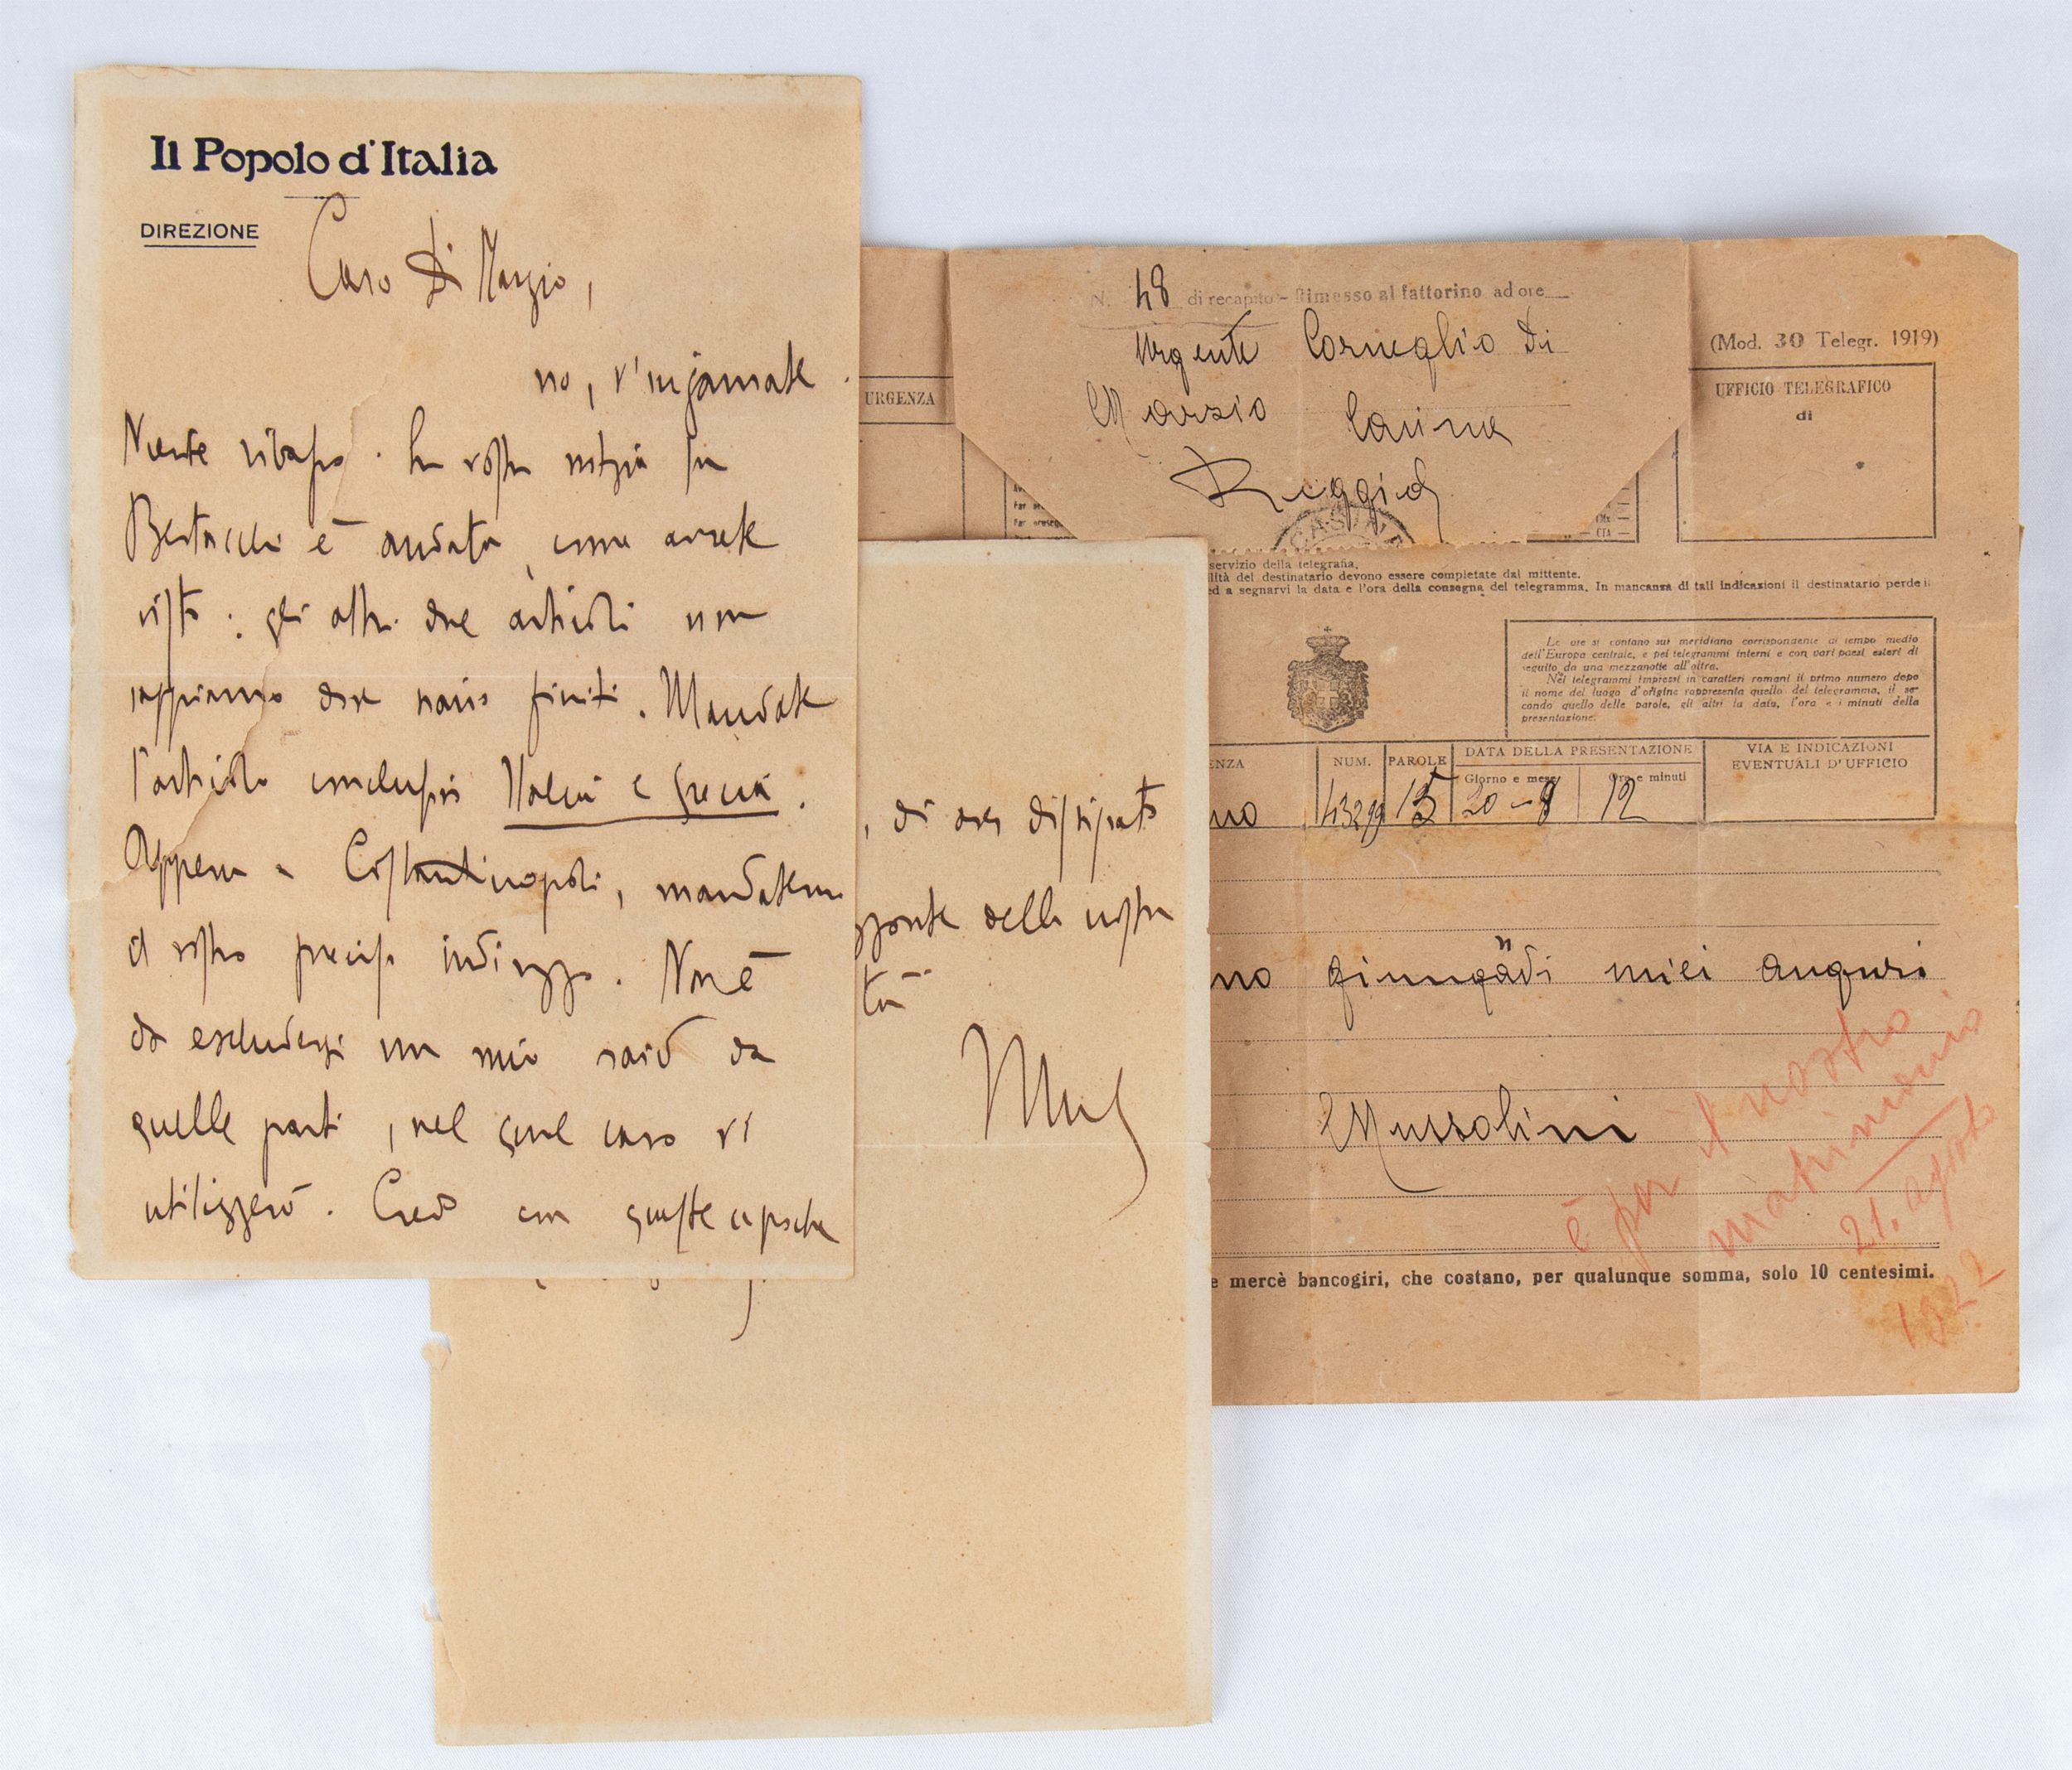 Il Popolo d'Italia
DIREZIONE
Caro Di Marzio,
no, v'ingannate.
Niente ribasso. La vostra notizia su
Bertacchi è andata, come avrete
visto: gli altri due articoli non
sappiamo dove siano finiti. Mandate
l'articolo conclusivo Italia e Grecia.
Appena a Costantinopoli, mandatemi
il vostro preciso indirizzo. Non è
da escludersi un mio raid da
quelle parti, nel qual caso vi
utilizzerò. Credo con queste
, di aver dissipato
orizzonte della vostra
Mus
N. 48 di recapito - Rimesso al fattorino ad ore
Urgente Corneglio Di
Marzio Casina
Reggio
(Mod. 30 Telegr. 1919)
URGENZA
UFFICIO TELEGRAFICO
di
servizio della telegrafia.
lità del destinatario devono essere completate dal mittente.
ed a segnarvi la data e l'ora della consegna del telegramma. In mancanza di tali indicazioni il destinatario perde il
Le ore si contano sul meridiano corrispondente al tempo medio
dell'Europa centrale, e pei telegrammi interni e con vari paesi esteri di
seguito da una mezzanotte all'altra.
Nei telegrammi impressi in caratteri romani il primo numero dopo
il nome del luogo d'origine rappresenta quello del telegramma, il se-
condo quello delle parole, gli altri la data, l'ora e i minuti della
presentazione.
ENZA
NUM.
PAROLE
DATA DELLA PRESENTAZIONE
Giorno e mese
Ore e minuti
VIA E INDICAZIONI
EVENTUALI D'UFFICIO
no 15 20-8 12
no giungandi miei auguri
Mussolini
è per il nostro
matrimonio
21. agosto
1922
e mercè bancogiri, che costano, per qualunque somma, solo 10 centesimi.